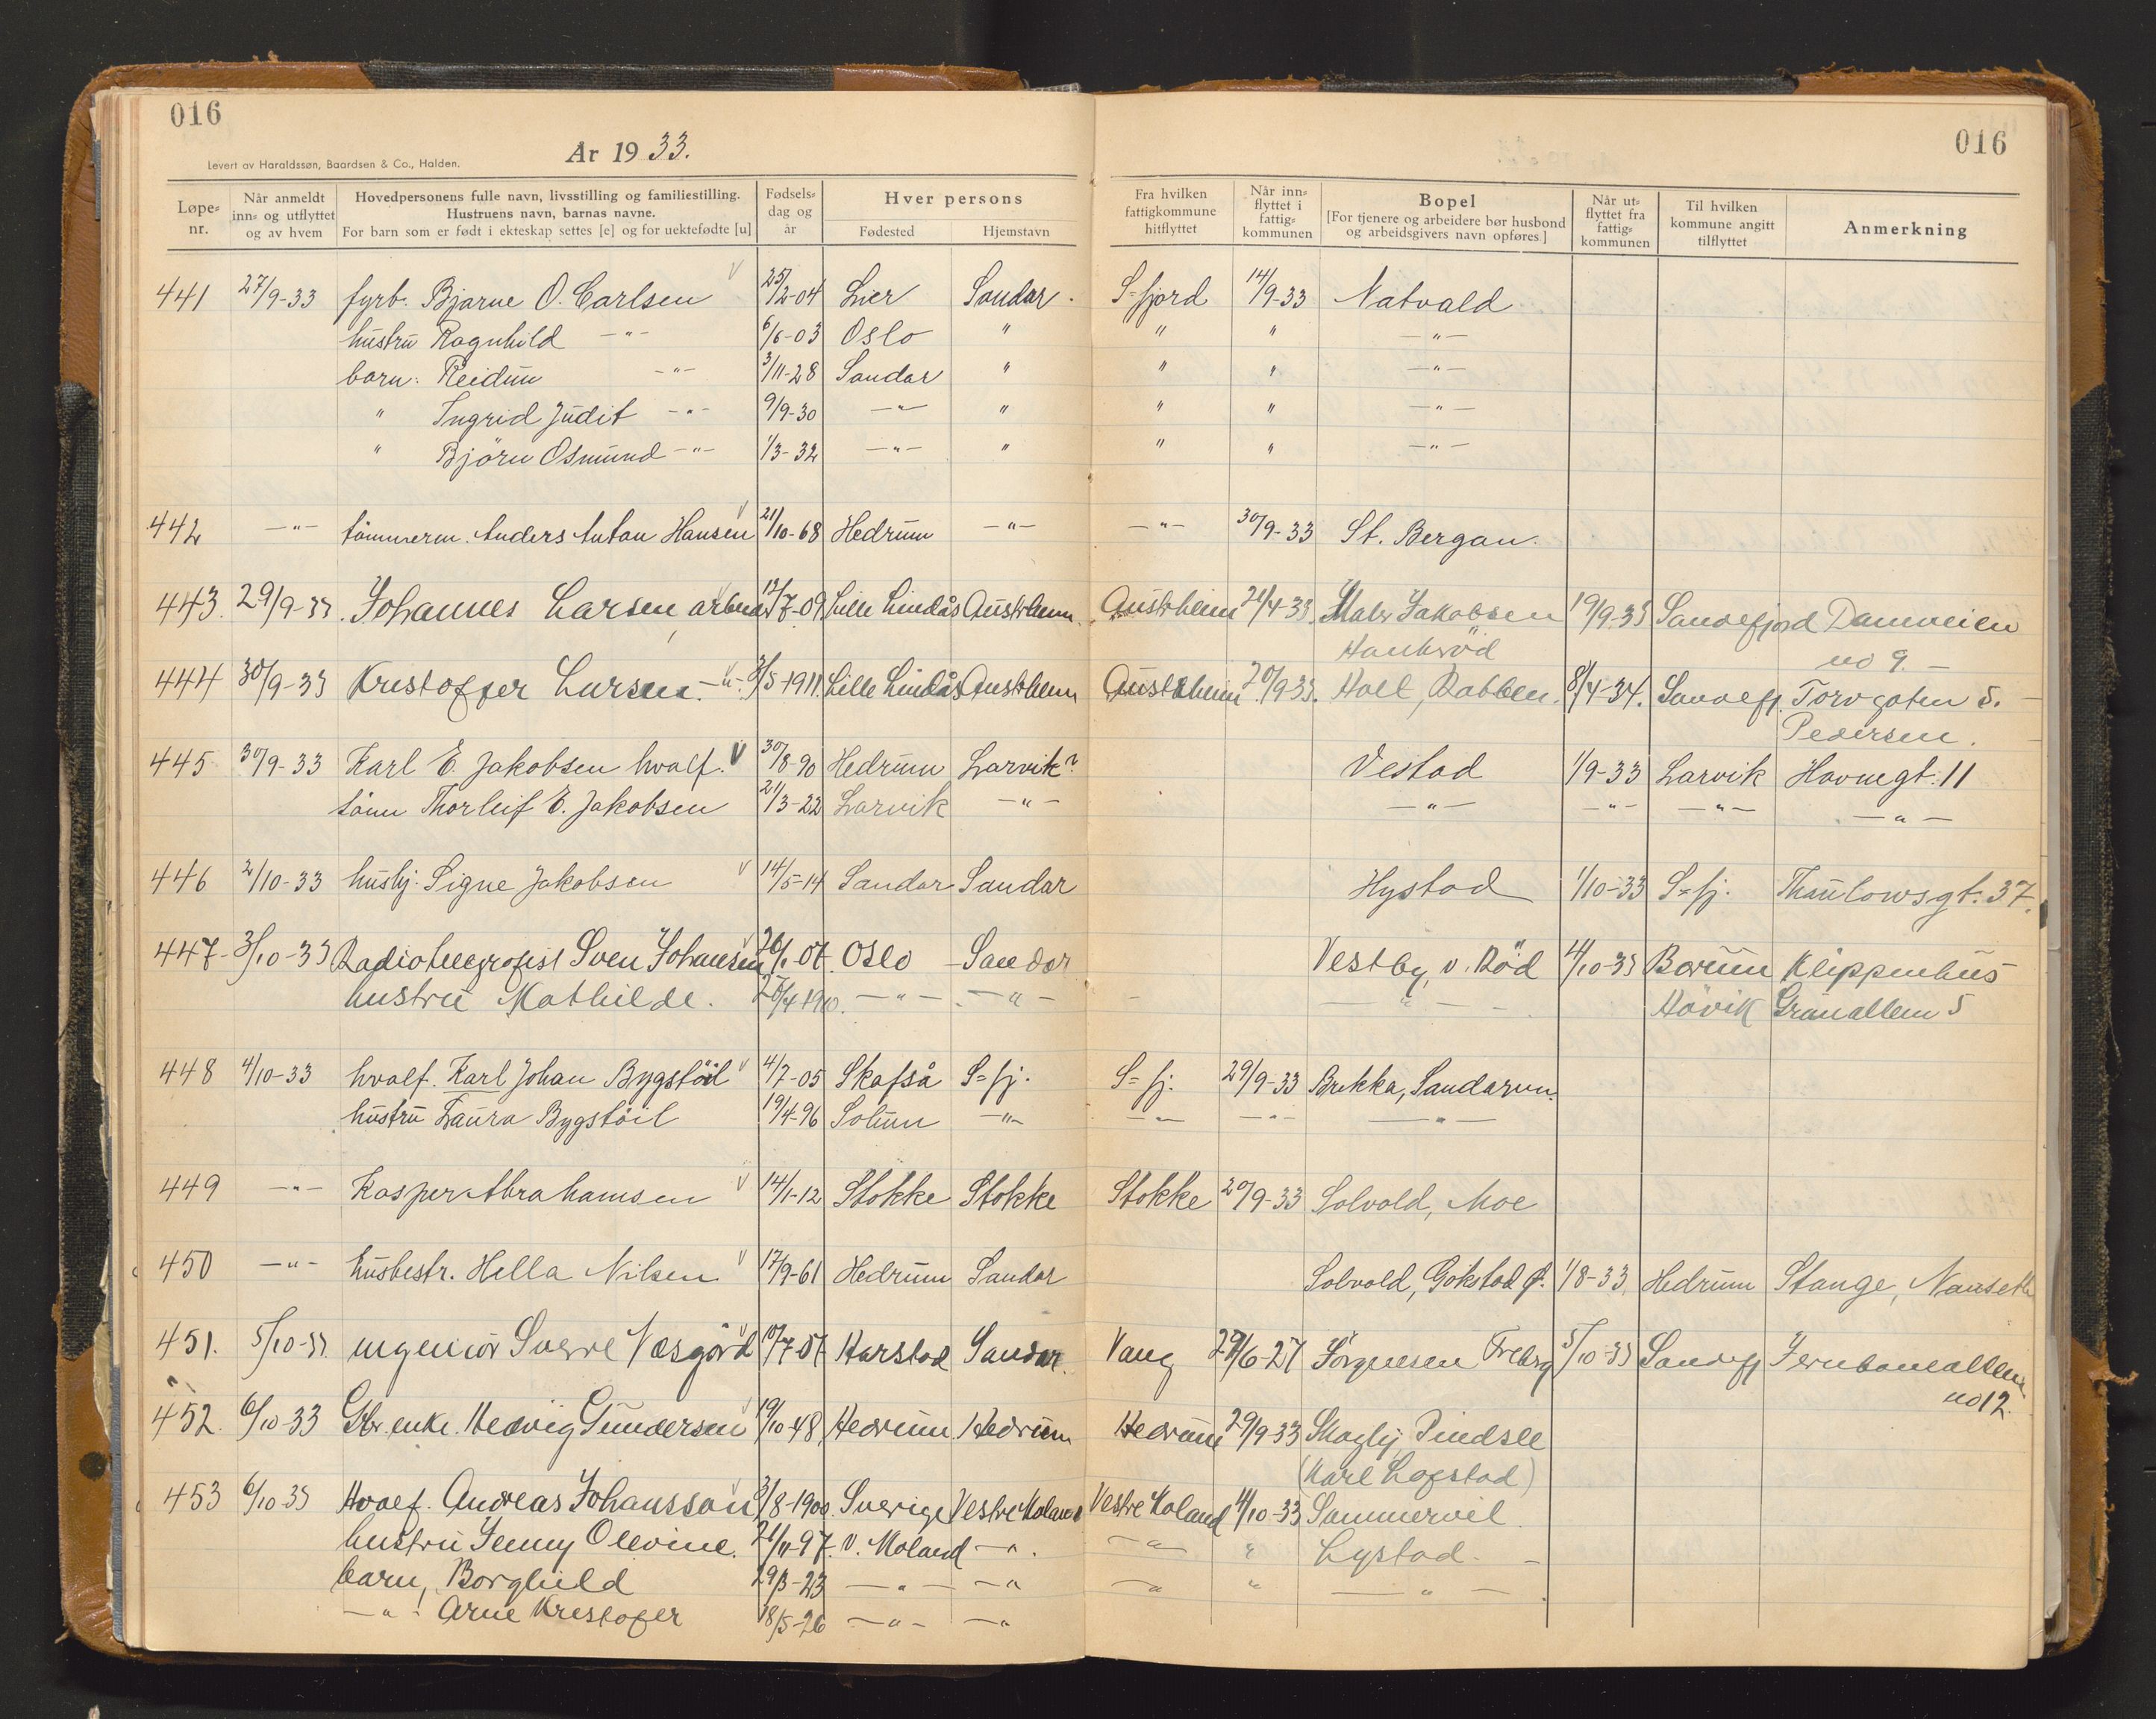 016
016
Levert av Haraldssøn, Baardsen & Co., Halden.
År 1933.
Løpenr. | Når anmeldt inn= og utflyttet og av hvem | Hovedpersonens fulle navn, livsstilling og familiestilling. Hustruens navn, barnas navne. For barn som er født i ekteskap settes [e] og for uektefødte [u] | Fødsels= dag og år | Hver persons Fødested | Hjemstavn | Fra hvilken fattigkommune hitflyttet | Når inn= flyttet i fattig= kommunen | Bopel [For tjenere og arbeidere bør husbond og arbeidsgivers navn opføres] | Når ut= flyttet fra fattig= kommunen | Til hvilken kommune angitt tilflyttet | Anmerkning
441 27/9-33 fyrb. Bjarne O. Carlsen 25/2-04 Lier Sandar. S=fjord 14/9-33 Natvald
hustru Ragnhild -"- 6/6-03 Oslo " " " -"-
barn: Reidun -"- 3/11-28 Sandar " " " -"-
" Ingrid Judit -"- 9/9-30 -"- " " " -"-
" Björn Osmund -"- 1/3-32 -"- " " " -"-
442 -"- tömmerm. Anders Anton Hansen 21/10-68 Hedrum -"- -"- 30/9-33 St. Bergan.
443. 29/9-33. Johannes Larsen, arbeid. 13/7-09 Lille Lindås Austrheim. Austrheim /4-33. Jakobsen 19/9-33 Sandefjord Damveien
no 9. -
444 30/9-33 Kristoffer Larsen. -"- 3/5-1911. Lille Lindås Austrheim Austrheim 20/9-33. Hall, Rabben. 8/4-34. Sandefj. Torvgaten 5.
Pedersen.
445 30/9-33 Karl E. Jakobsen hvalf. 30/8-90 Hedrum Larvik? Vestad 1/9-33 Larvik Havnegt. 11
sönn Thorleif E. Jakobsen 21/3-22 Larvik -"- -"- -"- -"- -"-
446 2/10-33 hushj. Signe Jakobsen 14/5-14 Sandar Sandar Hystad 1/10-33 S=fj. Thaulowsgt. 37.
447- 3/10-33 Radiotelegrafist Sven Johansen 26/1-07. Oslo Sandar Vestby, v. Röd 4/10-33 Bærum Klippenhus
hustru Mathilde. 25/4-1910. -"- -"- -"- Hövik Granalleen 5
448 4/10-33 hvalf. Karl Johan Bygstöil 4/7-05 Skafså S=fj. S=fj. 29/9-33 Brekka, Sandarvn.
hustru Laura Bygstöil 19/4-96 Solum -"- -"- -"- -"-
449 -"- Kasper Abrahamsen 14/1-12 Stokke Stokke Stokke 20/9-33 Solvold, Moe
450 -"- husbestr. Hella Nilsen 17/9-61 Hedrum Sandar Solvold, Gokstad Ø. 1/8-33. Hedrum Stange, Nanseth
451. 5/10-33 ingeniör Sverre Næsgård 10/7-07 Harstad Sandar. Vang 29/6-27 Jörgensen Freberg 5/10-33 Sandefj Jernbanealleen
no 12.
452. 6/10-33 Gbr. enke. Hedvig Gundersen 19/10-48, Hedrum Hedrum Hedrum 29/9-33 Skogly, Pindsle
(Karl Lofstad)
453 6/10-33 Hvalf. Andreas Johansson 3/8-1900. Sverige Vestre Moland Vestre Moland 4/10-33 Sommervil
hustru Jenny Olevine. 21/11-97. V. Moland -"-. -"- " Lystad. -
barn, Borghild 29/3-23 -"- -"- -"- " -"-
-"- Arne Kristofer 18/5-26 -"- -"-